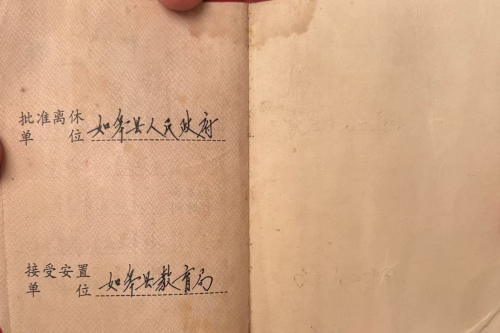 批准离休
单 位 如皋县人民政府
接受安置
单 位 如皋县教育局